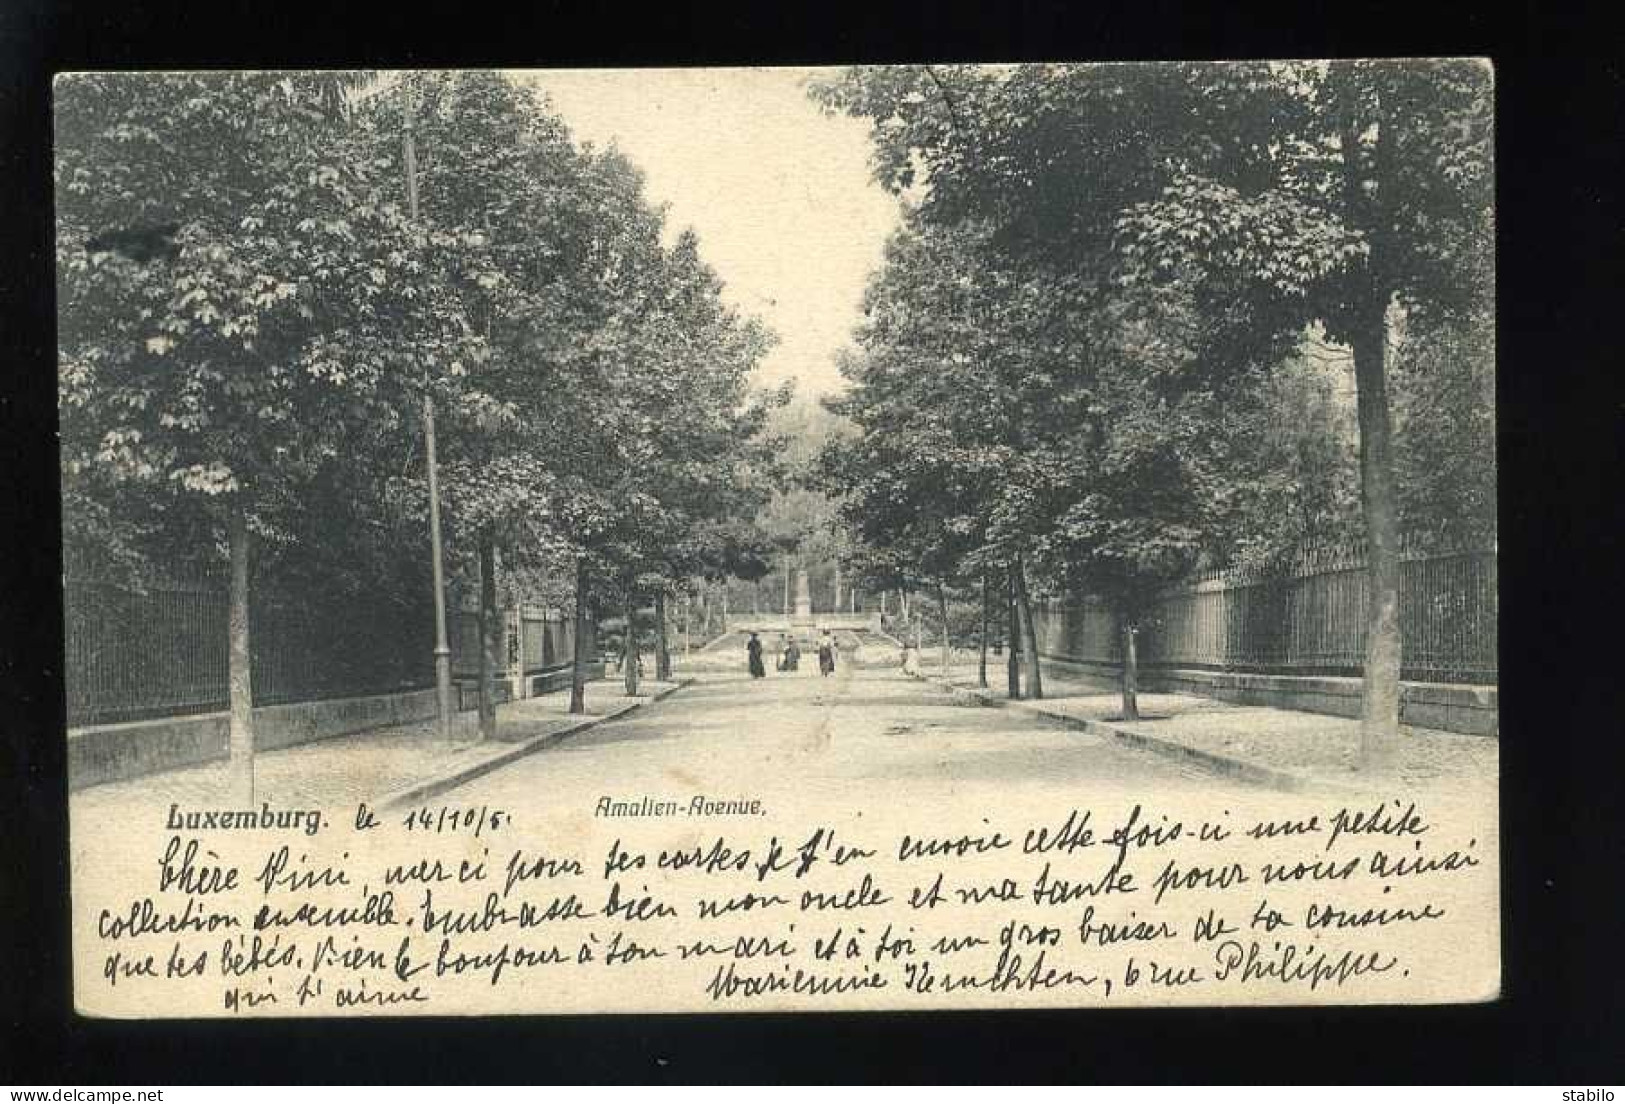 Luxemburg. le 14/10/5. Amalien-Avenue.
Chère Nini, merci pour tes cartes, je t'en envoie cette fois-ci une petite
collection ensemble. Embrasse bien mon oncle et ma tante pour nous ainsi
que tes bébés. Bien le bonjour à ton mari et à toi un gros baiser de ta cousine
qui t'aime Mariennie 6 rue Philippe.
delcampe.net
stabulo